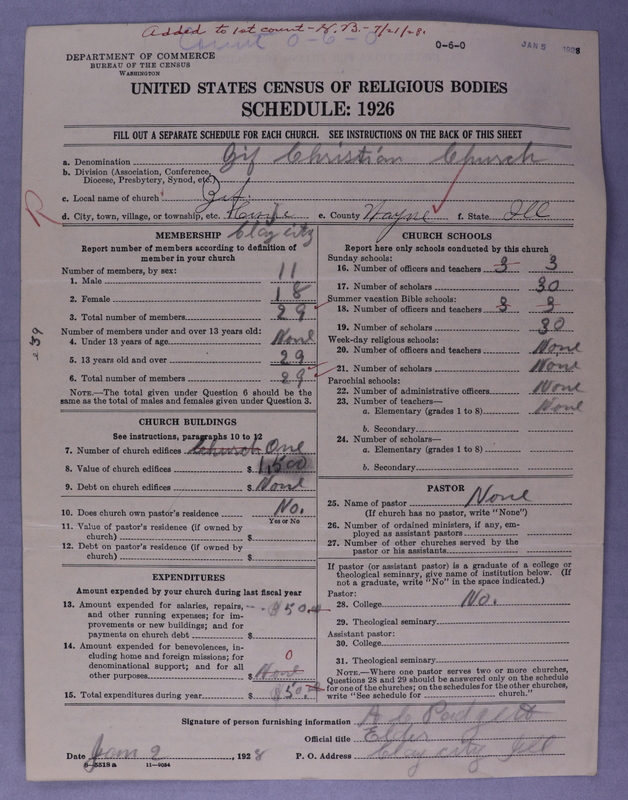 Added to 1st count - H. B. - 7/21/28.
Count 0-6-0
0-6-0
JAN 5 1928
DEPARTMENT OF COMMERCE
BUREAU OF THE CENSUS
WASHINGTON
UNITED STATES CENSUS OF RELIGIOUS BODIES
SCHEDULE: 1926
FILL OUT A SEPARATE SCHEDULE FOR EACH CHURCH. SEE INSTRUCTIONS ON THE BACK OF THIS SHEET
a. Denomination Zif Christian Church
b. Division (Association, Conference, Diocese, Presbytery, Synod, etc.)
c. Local name of church Zif
R
d. City, town, village, or township, etc. e. County Wayne f. State Ill
Clay city
MEMBERSHIP
Report number of members according to definition of member in your church
Number of members, by sex:
1. Male 11
2. Female 18
3. Total number of members 29
Number of members under and over 13 years old:
4. Under 13 years of age None
5. 13 years old and over 29
6. Total number of members 29
NOTE.—The total given under Question 6 should be the same as the total of males and females given under Question 3.
CHURCH BUILDINGS
See instructions, paragraphs 10 to 12
7. Number of church edifices Church One
8. Value of church edifices $ 1,500
9. Debt on church edifices $ None
10. Does church own pastor's residence? No.
Yes or No
11. Value of pastor's residence (if owned by church) $
12. Debt on pastor's residence (if owned by church) $
EXPENDITURES
Amount expended by your church during last fiscal year
13. Amount expended for salaries, repairs, and other running expenses; for improvements or new buildings; and for payments on church debt $ $50.00
14. Amount expended for benevolences, including home and foreign missions; for denominational support; and for all other purposes $ None 0
15. Total expenditures during year $ $50.00
CHURCH SCHOOLS
Report here only schools conducted by this church
Sunday schools:
16. Number of officers and teachers 3 3
17. Number of scholars 30
Summer vacation Bible schools:
18. Number of officers and teachers 3 3
19. Number of scholars 30
Week-day religious schools:
20. Number of officers and teachers None
21. Number of scholars None
Parochial schools:
22. Number of administrative officers None
23. Number of teachers—
a. Elementary (grades 1 to 8) None
b. Secondary
24. Number of scholars—
a. Elementary (grades 1 to 8)
b. Secondary
PASTOR
25. Name of pastor None
(If church has no pastor, write "None")
26. Number of ordained ministers, if any, employed as assistant pastors
27. Number of other churches served by the pastor or his assistants
If pastor (or assistant pastor) is a graduate of a college or theological seminary, give name of institution below. (If not a graduate, write "No" in the space indicated.)
Pastor:
28. College No.
29. Theological seminary
Assistant pastor:
30. College
31. Theological seminary
NOTE.—Where one pastor serves two or more churches, Questions 28 and 29 should be answered only on the schedule for one of the churches; on the schedules for the other churches, write "See schedule for church."
Signature of person furnishing information A C Padgett
Official title Elder
Date Jan 2, 1928 P. O. Address Clay city Ill
8—5518a 11—9054